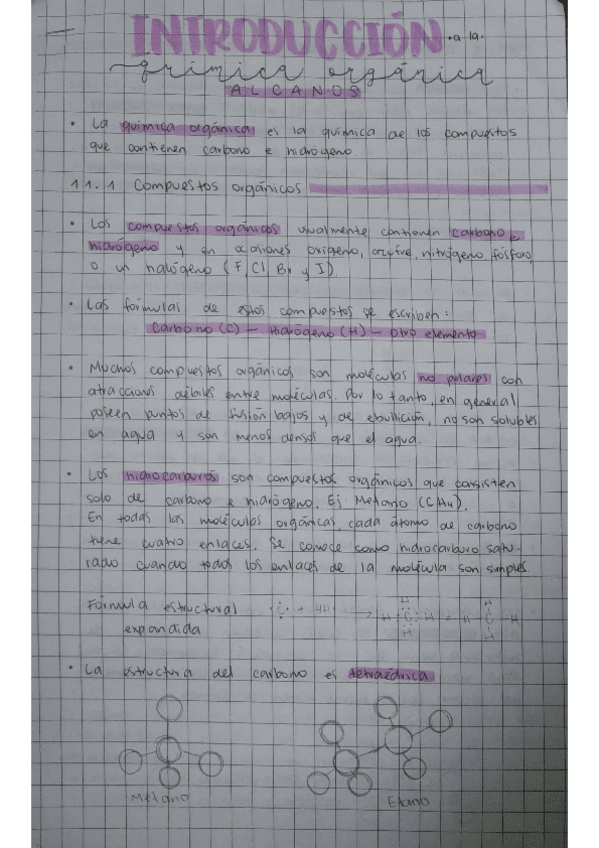 INTRODUCCIÓN • a la •
química orgánica
ALCANOS
• La química orgánica es la química de los compuestos
que contienen carbono e hidrógeno.
11.1 Compuestos orgánicos
• Los compuestos orgánicos usualmente contienen carbono e
hidrógeno y en ocasiones oxígeno, azufre, nitrógeno, fósforo
o un halógeno (F, Cl, Br y I).
• Las fórmulas de estos compuestos se escriben:
Carbono (C) — Hidrógeno (H) — Otro elemento
• Muchos compuestos orgánicos son moléculas no polares con
atracciones débiles entre moléculas. Por lo tanto, en general
poseen puntos de fusión bajos y de ebullición, no son solubles
en agua y son menos densos que el agua.
• Los hidrocarburos son compuestos orgánicos que consisten
solo de carbono e hidrógeno. Ej: Metano (CH4).
En todas las moléculas orgánicas, cada átomo de carbono
tiene cuatro enlaces. Se conoce como hidrocarburo satu-
rado cuando todos los enlaces de la molécula son simples.
Fórmula estructural
expandida
·C· + 4H· → H:C:H = H-C-H
H H
H H
• La estructura del carbono es tetraédrica
Metano Etano